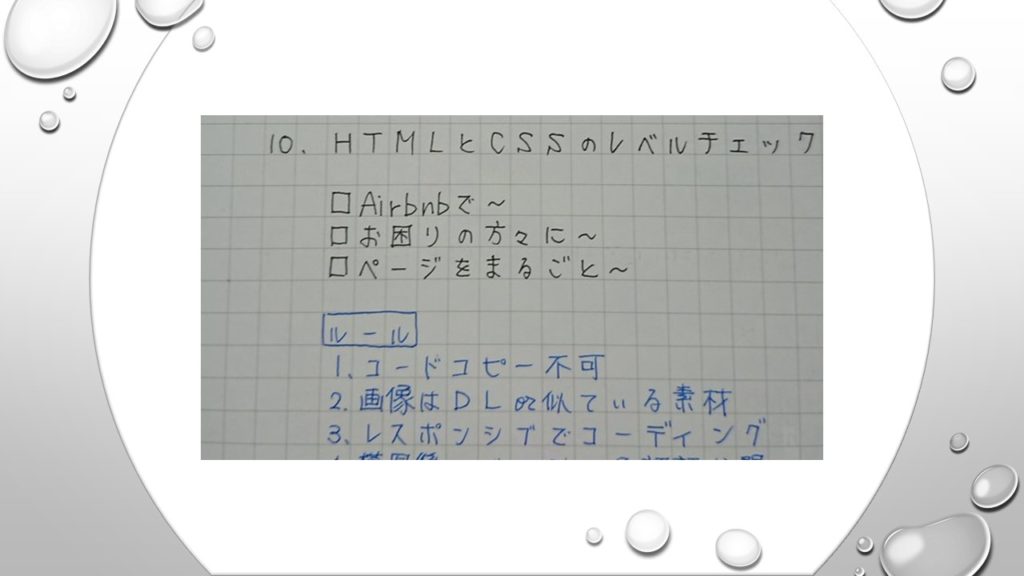 10. HTMLとCSSのレベルチェック
□Airbnbで～
□お困りの方々に～
□ページをまるごと～
ルール
1. コードコピー不可
2. 画像はDLor似ている素材
3. レスポンシブでコーディング